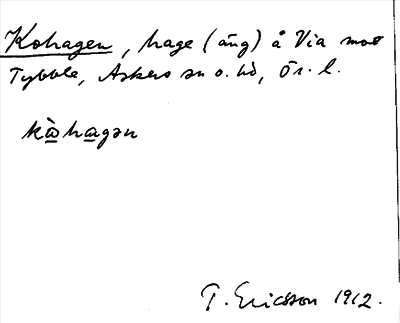 Kohagen, hage (äng) å Via mot
Tybble, Askers sn o. hd, Ör. l.
kὼhagən
T. Ericsson 1912.